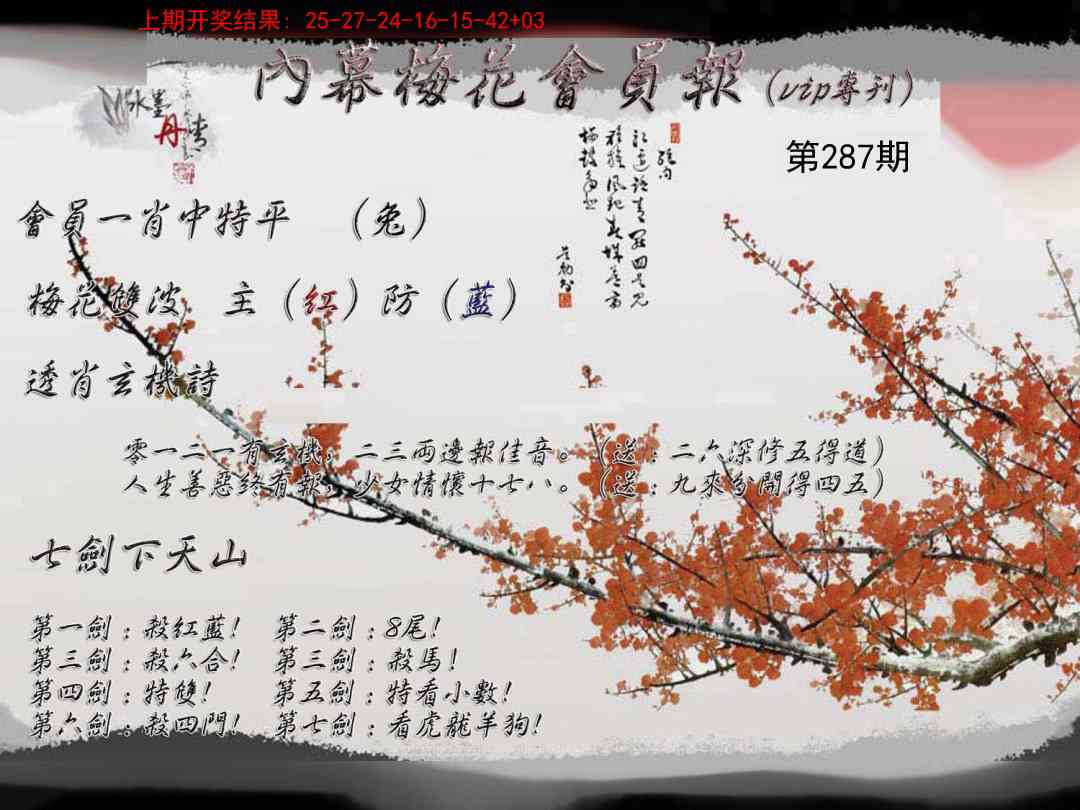 上期开奖结果: 25-27-24-16-15-42+03
內幕梅花會員報(vip專刊)
水墨
丹情
第287期
會員一肖中特平 (兔)
梅花雙波 主(紅)防(藍)
透肖玄機詩
零一二一有玄機，二三両邊報佳音。(送:二六深修五得道)
人生善惡終有報，少女情懷十七八。(送:九來分開得四五)
七劍下天山
第一劍:殺紅藍! 第二劍:8尾!
第三劍:殺六合! 第三劍:殺馬!
第四劍:特雙! 第五劍:特看小數!
第六劍:殺四門! 第七劍:看虎龍羊狗!